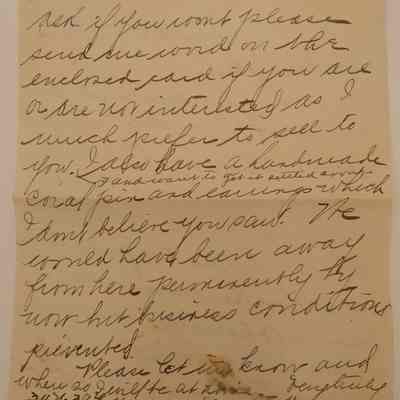 ask if you wont please
send me word on the
enclosed card if you are
or are not interested as I
much prefer to sell to
you. I also have a handmade
and want to get it settled
coral pin and earrings which
I dont believe you saw. We
would have been away
from here permanently by
now but business conditions
prevented.
Please let me know and
when so I will be at